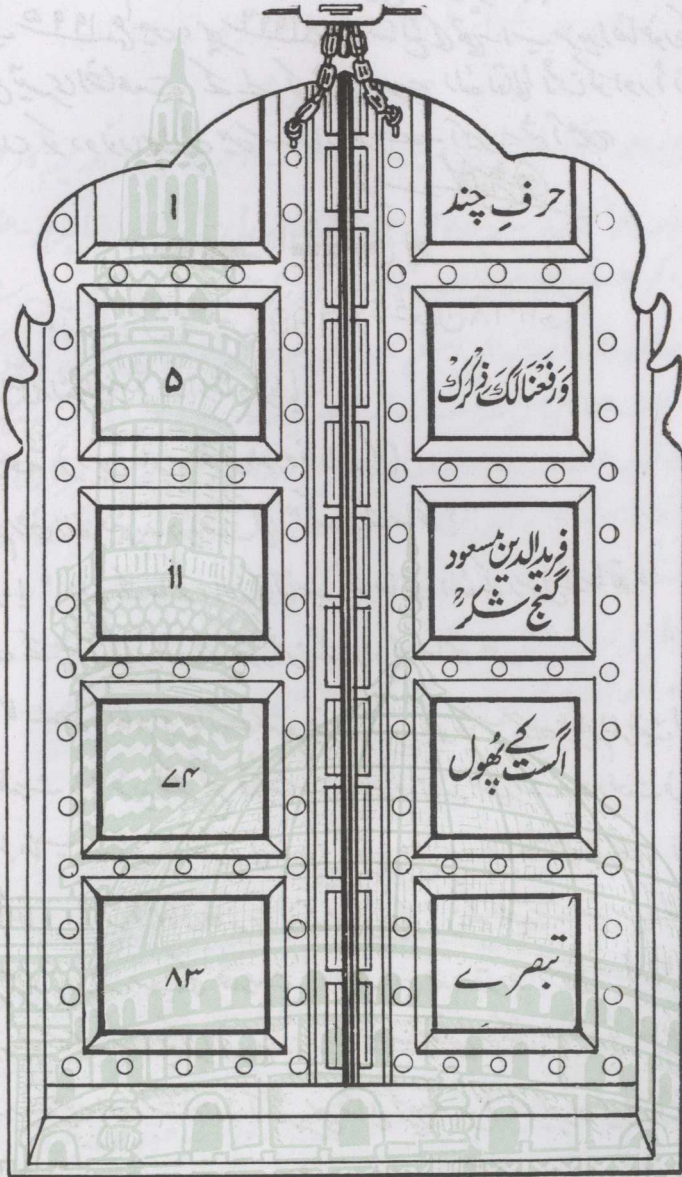 حرفِ چند
۱
وَرَفَعْنَا لَكَ ذِكْرَكْ
۵
فریدالدین مسعود
گنج شکرؒ
۱۱
اگست کے پھُول
۷۴
تبصرے
۸۳